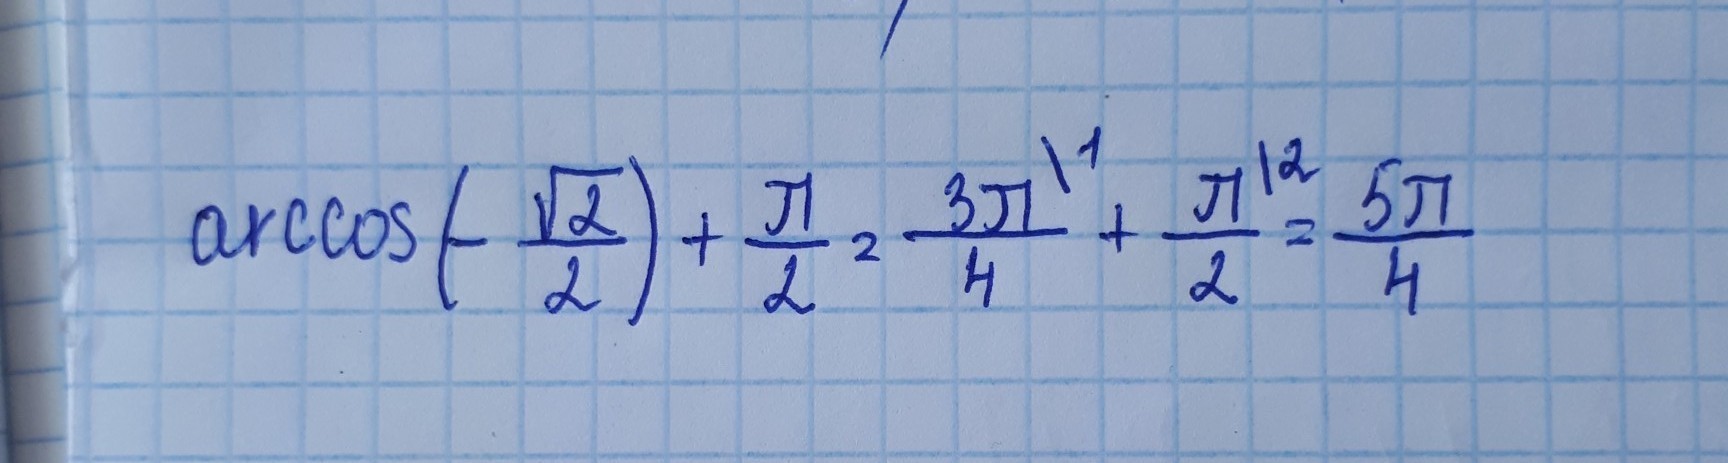 arccos(-√2/2) + π/2 = 3π\1/4 + π\2/2 = 5π/4